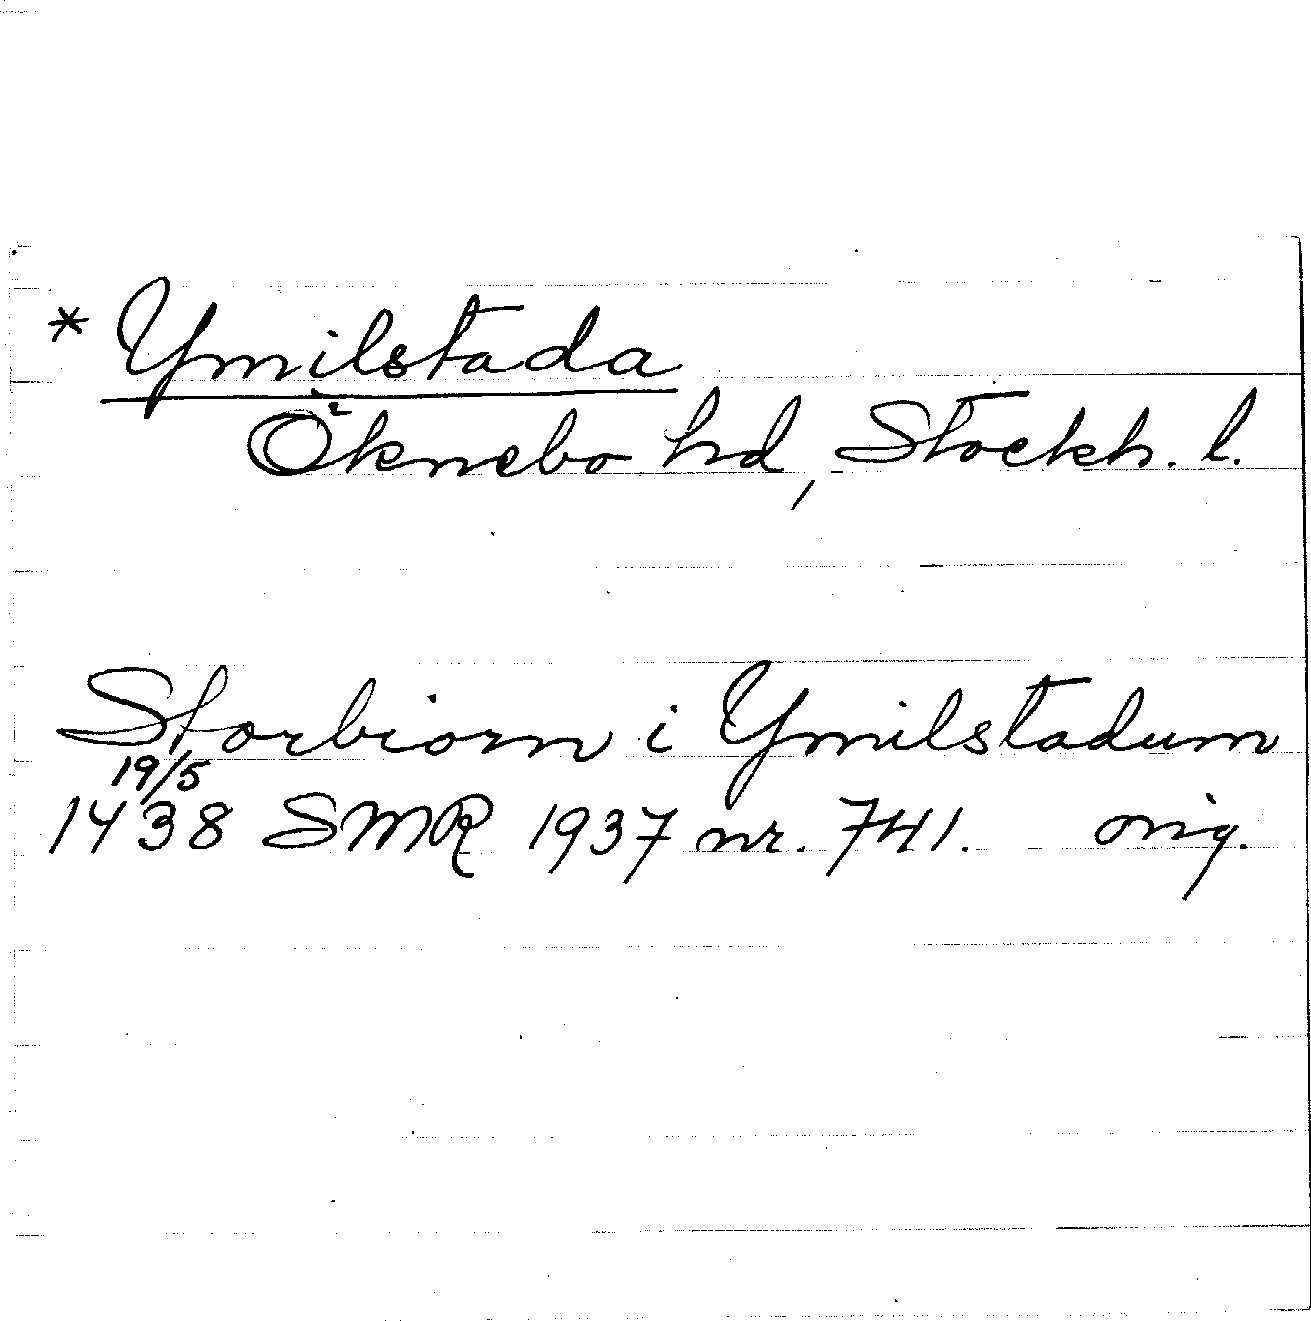 * Ymilstada
Öknebo hd, Stockh. l.
Storbiorn i Ymilstadum
19/5
1438 SMR 1937 nr. 741. orig.